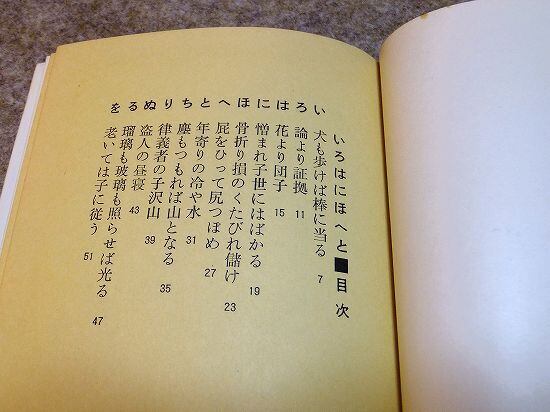 いろはにほへと■目次
い 犬も歩けば棒に当る 7
ろ 論より証拠 11
は 花より団子 15
に 憎まれ子世にはばかる 19
ほ 骨折り損のくたびれ儲け 23
へ 屁をひって尻つぼめ 27
と 年寄りの冷や水 31
ち 塵もつもれば山となる 35
り 律義者の子沢山 39
ぬ 盗人の昼寝 43
る 瑠璃も玻璃も照らせば光る 47
を 老いては子に従う 51